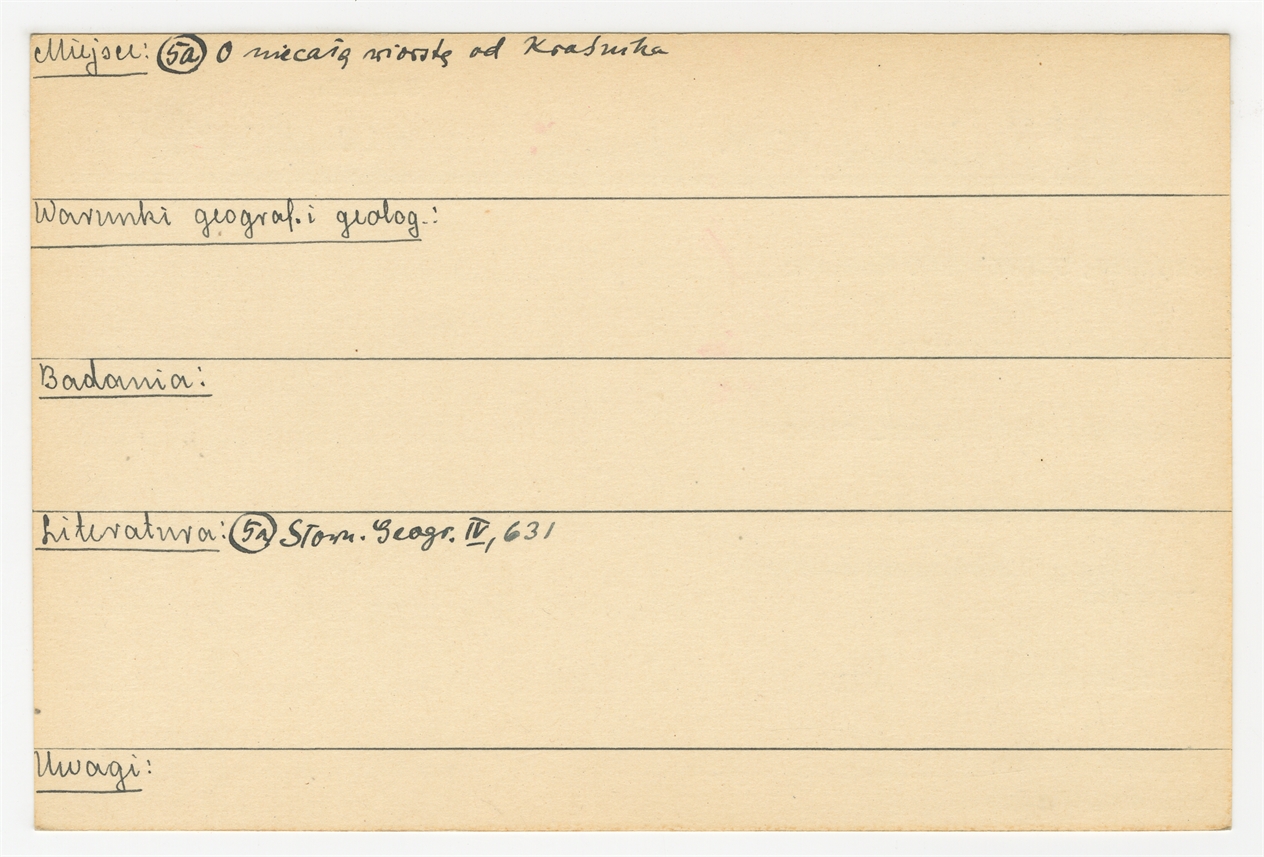 Miejsce: 5a O niecałą wiorstę od Kraśnika
Warunki geograf. i geolog.:
Badania:
Literatura: 5a Słown. Geogr. IV, 631
Uwagi: